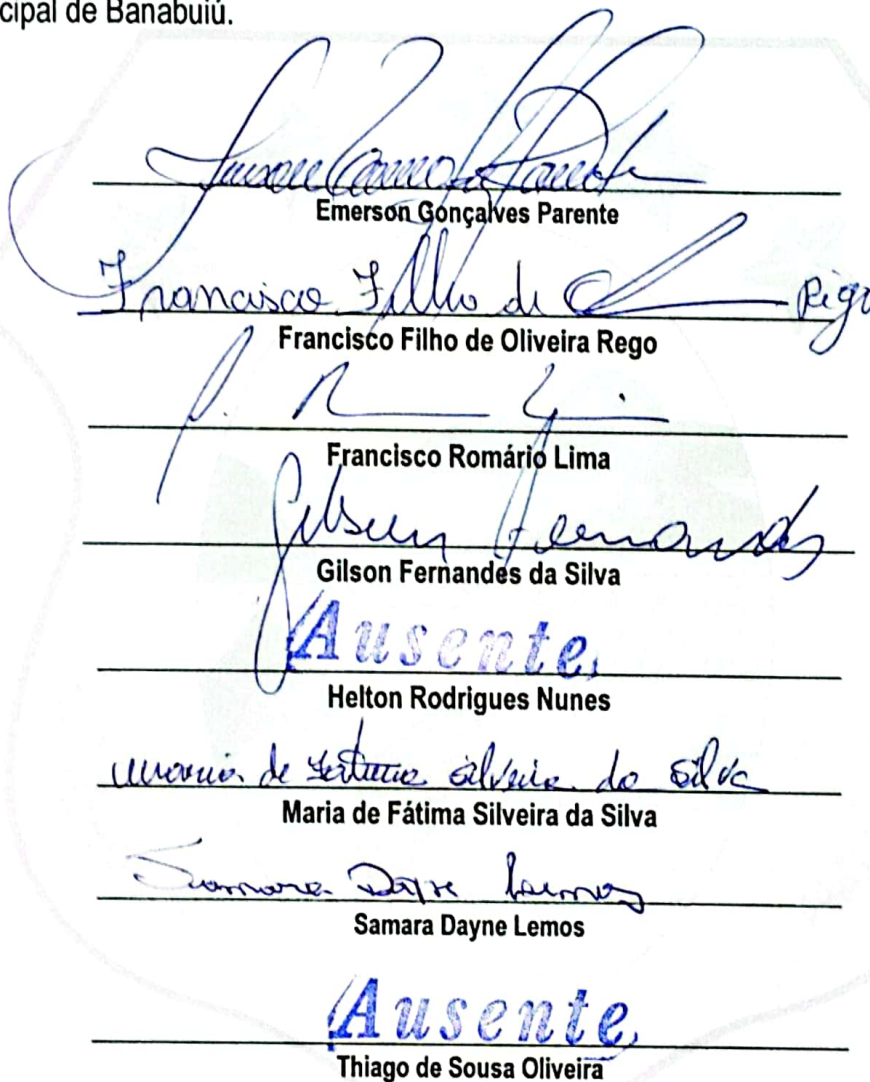 cipal de Banabuiú.
Emerson Gonçalves Parente
Francisco Filho de Rego
Francisco Filho de Oliveira Rego
Francisco Romário Lima
Gilson Fernandes
Gilson Fernandes da Silva
Ausente
Helton Rodrigues Nunes
Maria de Fatima Silveira da Silva
Maria de Fátima Silveira da Silva
Samara Dayne Lemos
Samara Dayne Lemos
Ausente
Thiago de Sousa Oliveira